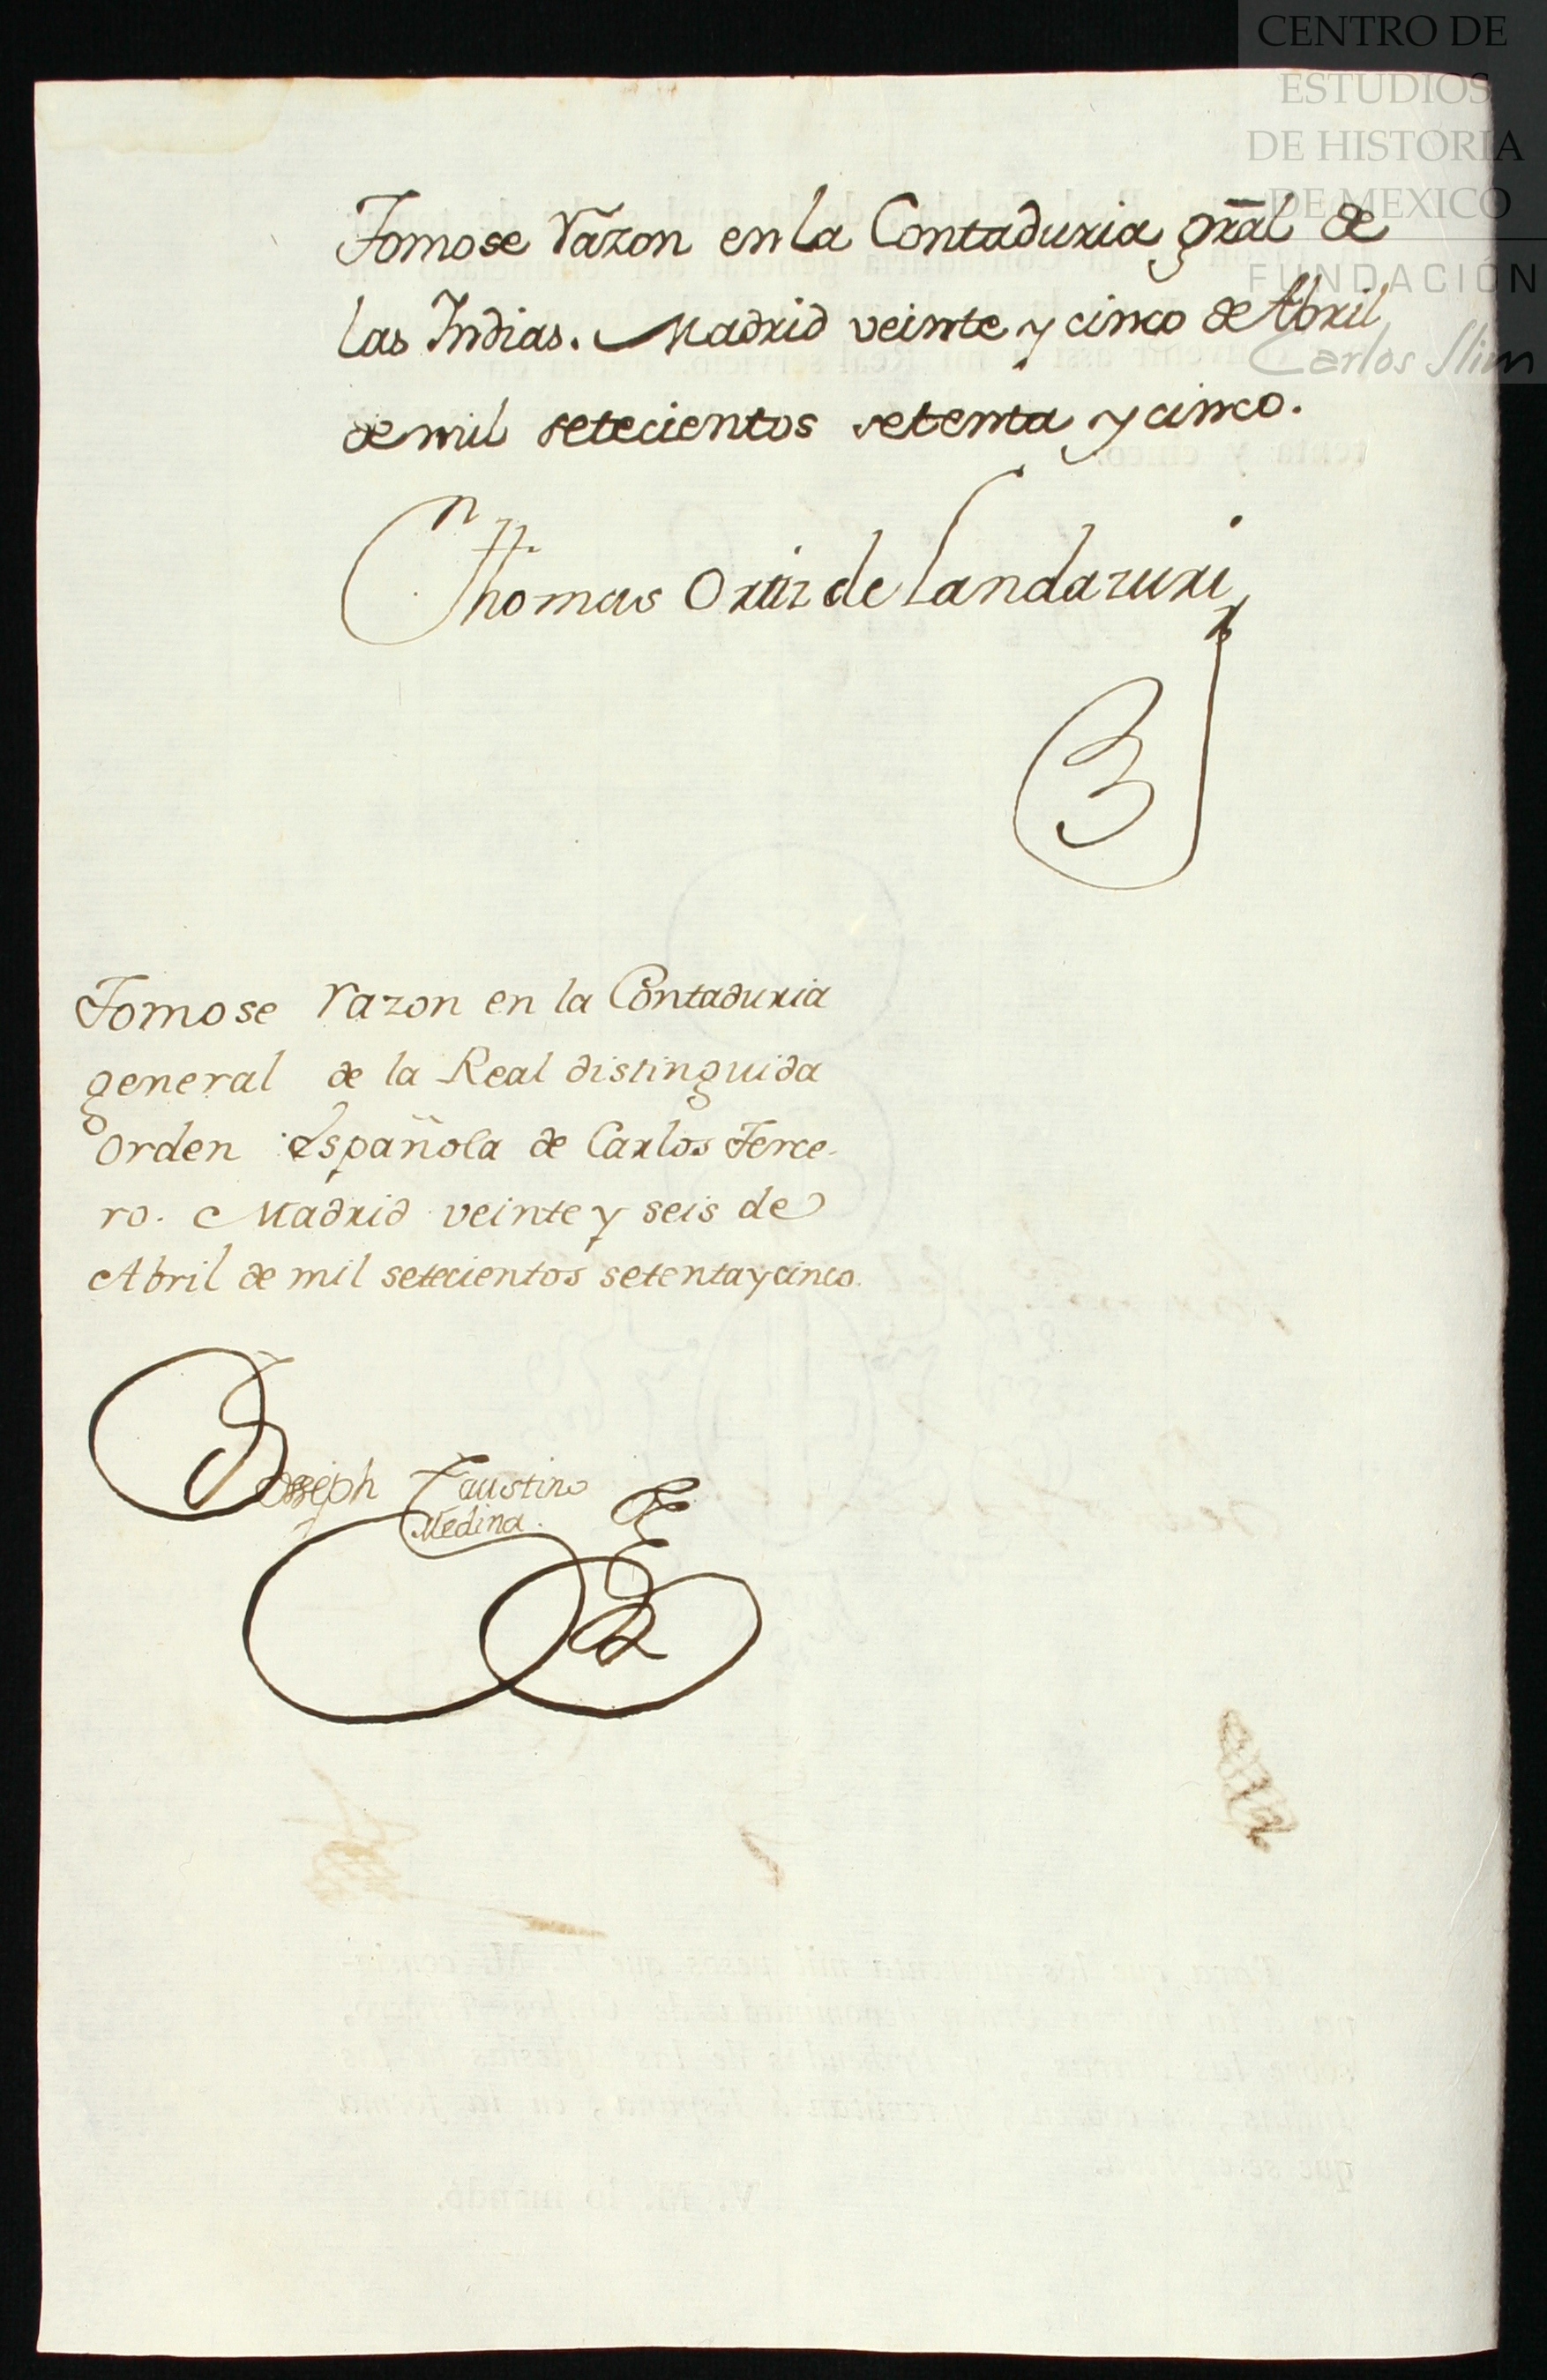 CENTRO DE
ESTUDIOS
DE HISTORIA
DE MEXICO
FUNDACIÓN
Carlos Slim
Tomose razon en la Contaduria gral de
las Indias. Madrid veinte y cinco de Abril
de mil setecientos setenta y cinco.
Thomas Ortiz de Landazuri
Tomose razon en la Contaduria
general de la Real distinguida
Orden Española de Carlos Terce-
ro. Madrid veinte y seis de
Abril de mil setecientos setenta y cinco.
Joseph Faustino
Medina.